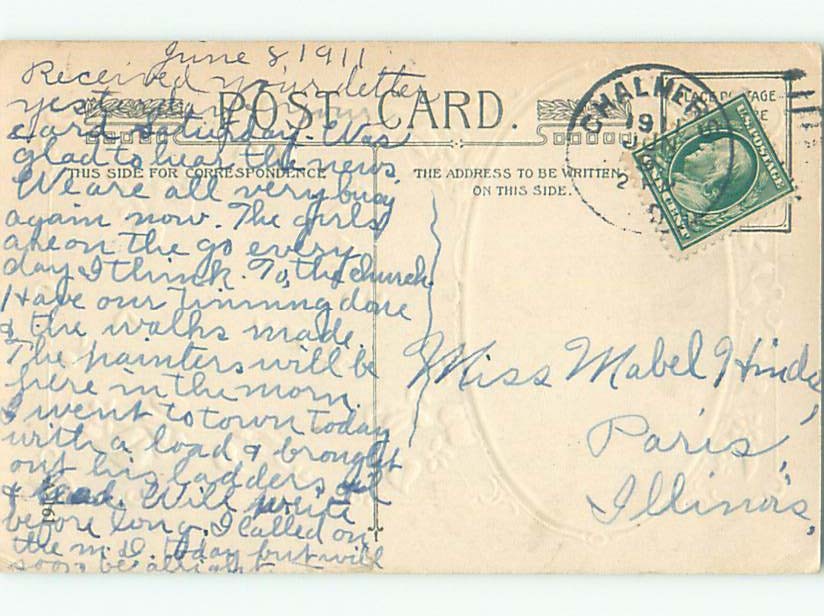 June 8, 1911
Received your letter
yesterday your
card Saturday. Was
glad to hear the news.
We are all very busy
again now. The girls
are on the go every
day I think. To, the church.
Have our tinning done
& the walks made.
The painters will be
here in the morn.
I went to town today
with a load & brought
out his ladders, oil
& lead. Will write
before long. I called on
the M.D. today but will
soon be alright.
POST CARD.
THIS SIDE FOR CORRESPONDENCE
THE ADDRESS TO BE WRITTEN
ON THIS SIDE.
CHALMERS
JUN
U.S. POSTAGE
Miss Mabel Hinds,
Paris,
Illinois,